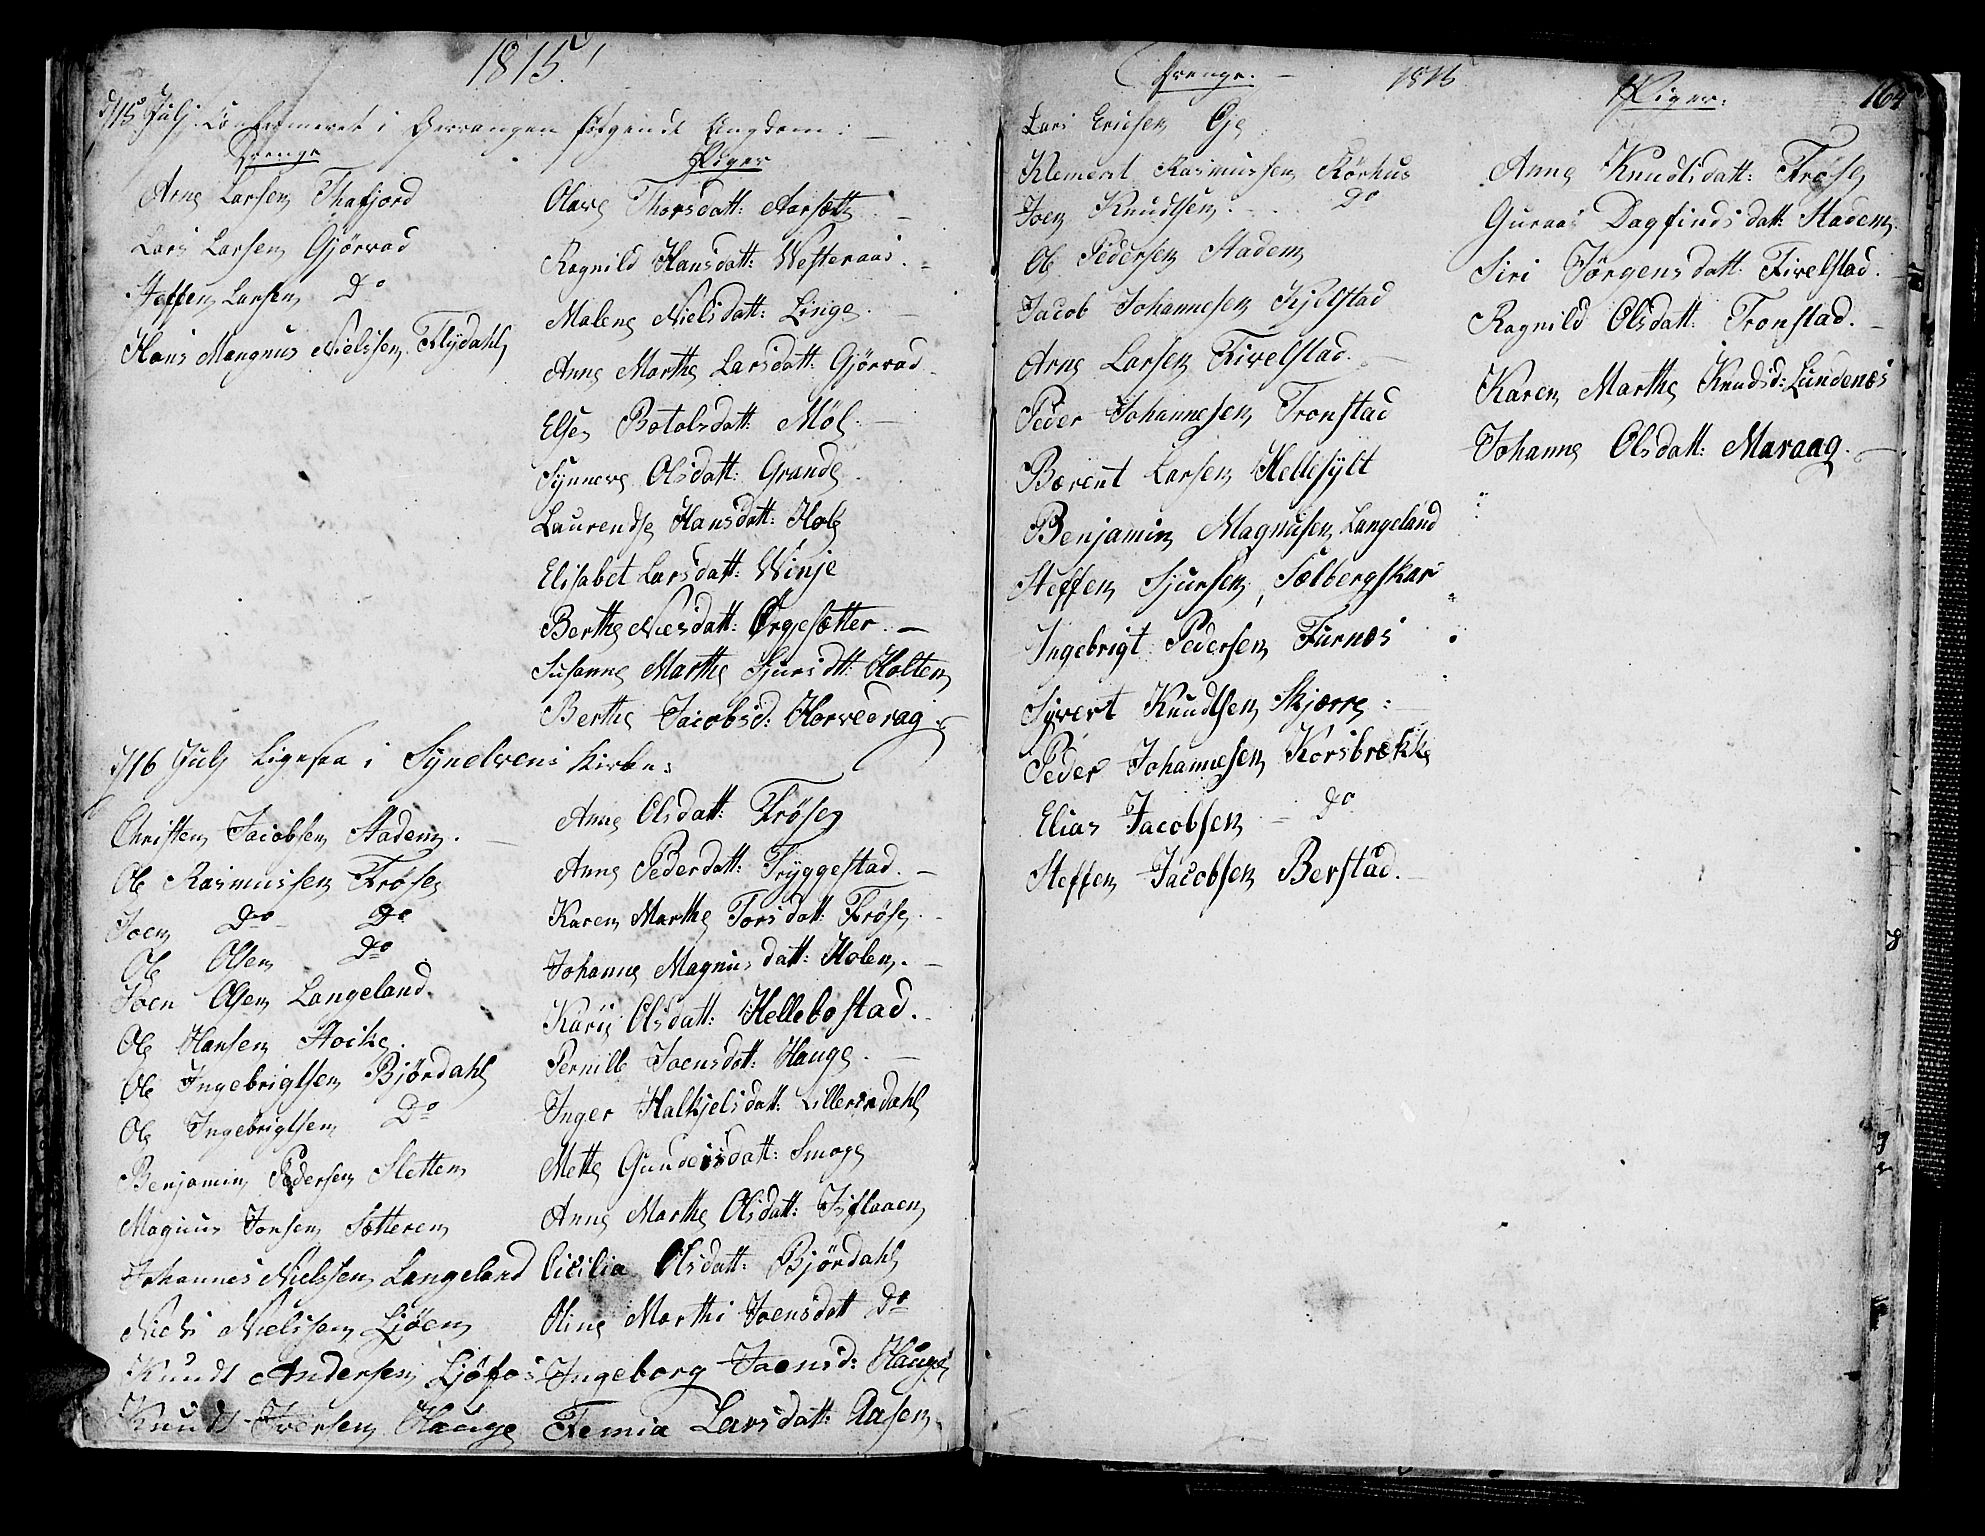 1815.
d/15 Julj Confirmeret i Gerrangen følgende Ungdom:
Drenge
Arne Larsen Thafjord
Lars Larsen Gjørvad
Steffen Larsen Do
Hans Mangnus Nielssen Flydahl
Piger
Olave Thorsdatt: Aarsætt
Ragnild Hansdatt: Westeraas.
Malene Nielsdatt: Linge.
Anne Marthe Larsdatt: Gjørvad
Else Botolsdatt: Møl.
Synneve Olsdatt: Grande
Laurendse Hansdatt: Hole
Elisabet Larsdatt: Winje
Berthe Niesdatt: Ørgesætter.
Susanne Marthe Sjursdtt: Holten
Berthe Jacobsd: Horvedrag.
d/16 Julj Ligesaa i Synelvens Kirke:
Christen Jacobsen Stadem.
Ole Rasmussen Frøse
Joen Do Do
Ole Olsen Do
Joen Olsen Langeland.
Ole Hansen Stoike.
Ole Ingebrigtsen Bjørdahl
Ole Ingebrigtsen Do
Benjamin Pedersen Sletten
Magnus Jonsen Sætteren
Johannes Nielssen Langeland
Niels Nielssen Ljøen
Knudt Andersen Ljøfos
Knudt Iversen Hauge
Anne Olsdatt: Frøse
Anne Pedersdatt: Tryggestad.
Karen Marthe Torsdatt: Frøse.
Johanne Magnusdatt: Holen.
Karij Olsdatt: Hellebostad.
Pernille Joensdatt: Hauge.
Inger Halkjelsdatt: Lillerindahl
Mette Gundersdatt: Smoge
Anne Marthe Olsdatt: Isflaaen
Cicilia Olsdatt: Bjørdahl
Oline Marthi Joensdatt Do
Ingeborg Joensd: Hauge
Femia Larsdatt: Aasen
Drenge. 1815 Piger. 164
Lars Ericsen Oje
Klement Rasmussen Kørhus
Joen Knudtsen Do
Ole Pedersen Stadem
Jacob Johannesen Kjelstad
Arne Larsen Fivelstad.
Peder Johannesen Tronstad
Bærent Larsen Hellesylt
Benjamin Magnusen Langeland
Steffen Sjursen, Sælbergskar
Ingebrigt Pedersen Furnæs
Syvert Knudtsen Skjærre:
Peder Johannesen Korsbrække
Elias Jacobsen Do
Steffen Jacobsen Berstad.
Anne Knudtsdatt: Frøse
Guraas Dagfindsdatt: Stadem
Siri Jørgensdatt: Fivelstad.
Ragnild Olsdatt: Tronstad.
Karen Marthe Knudsd: Lundenæs
Johanne Olsdatt: Maraag.